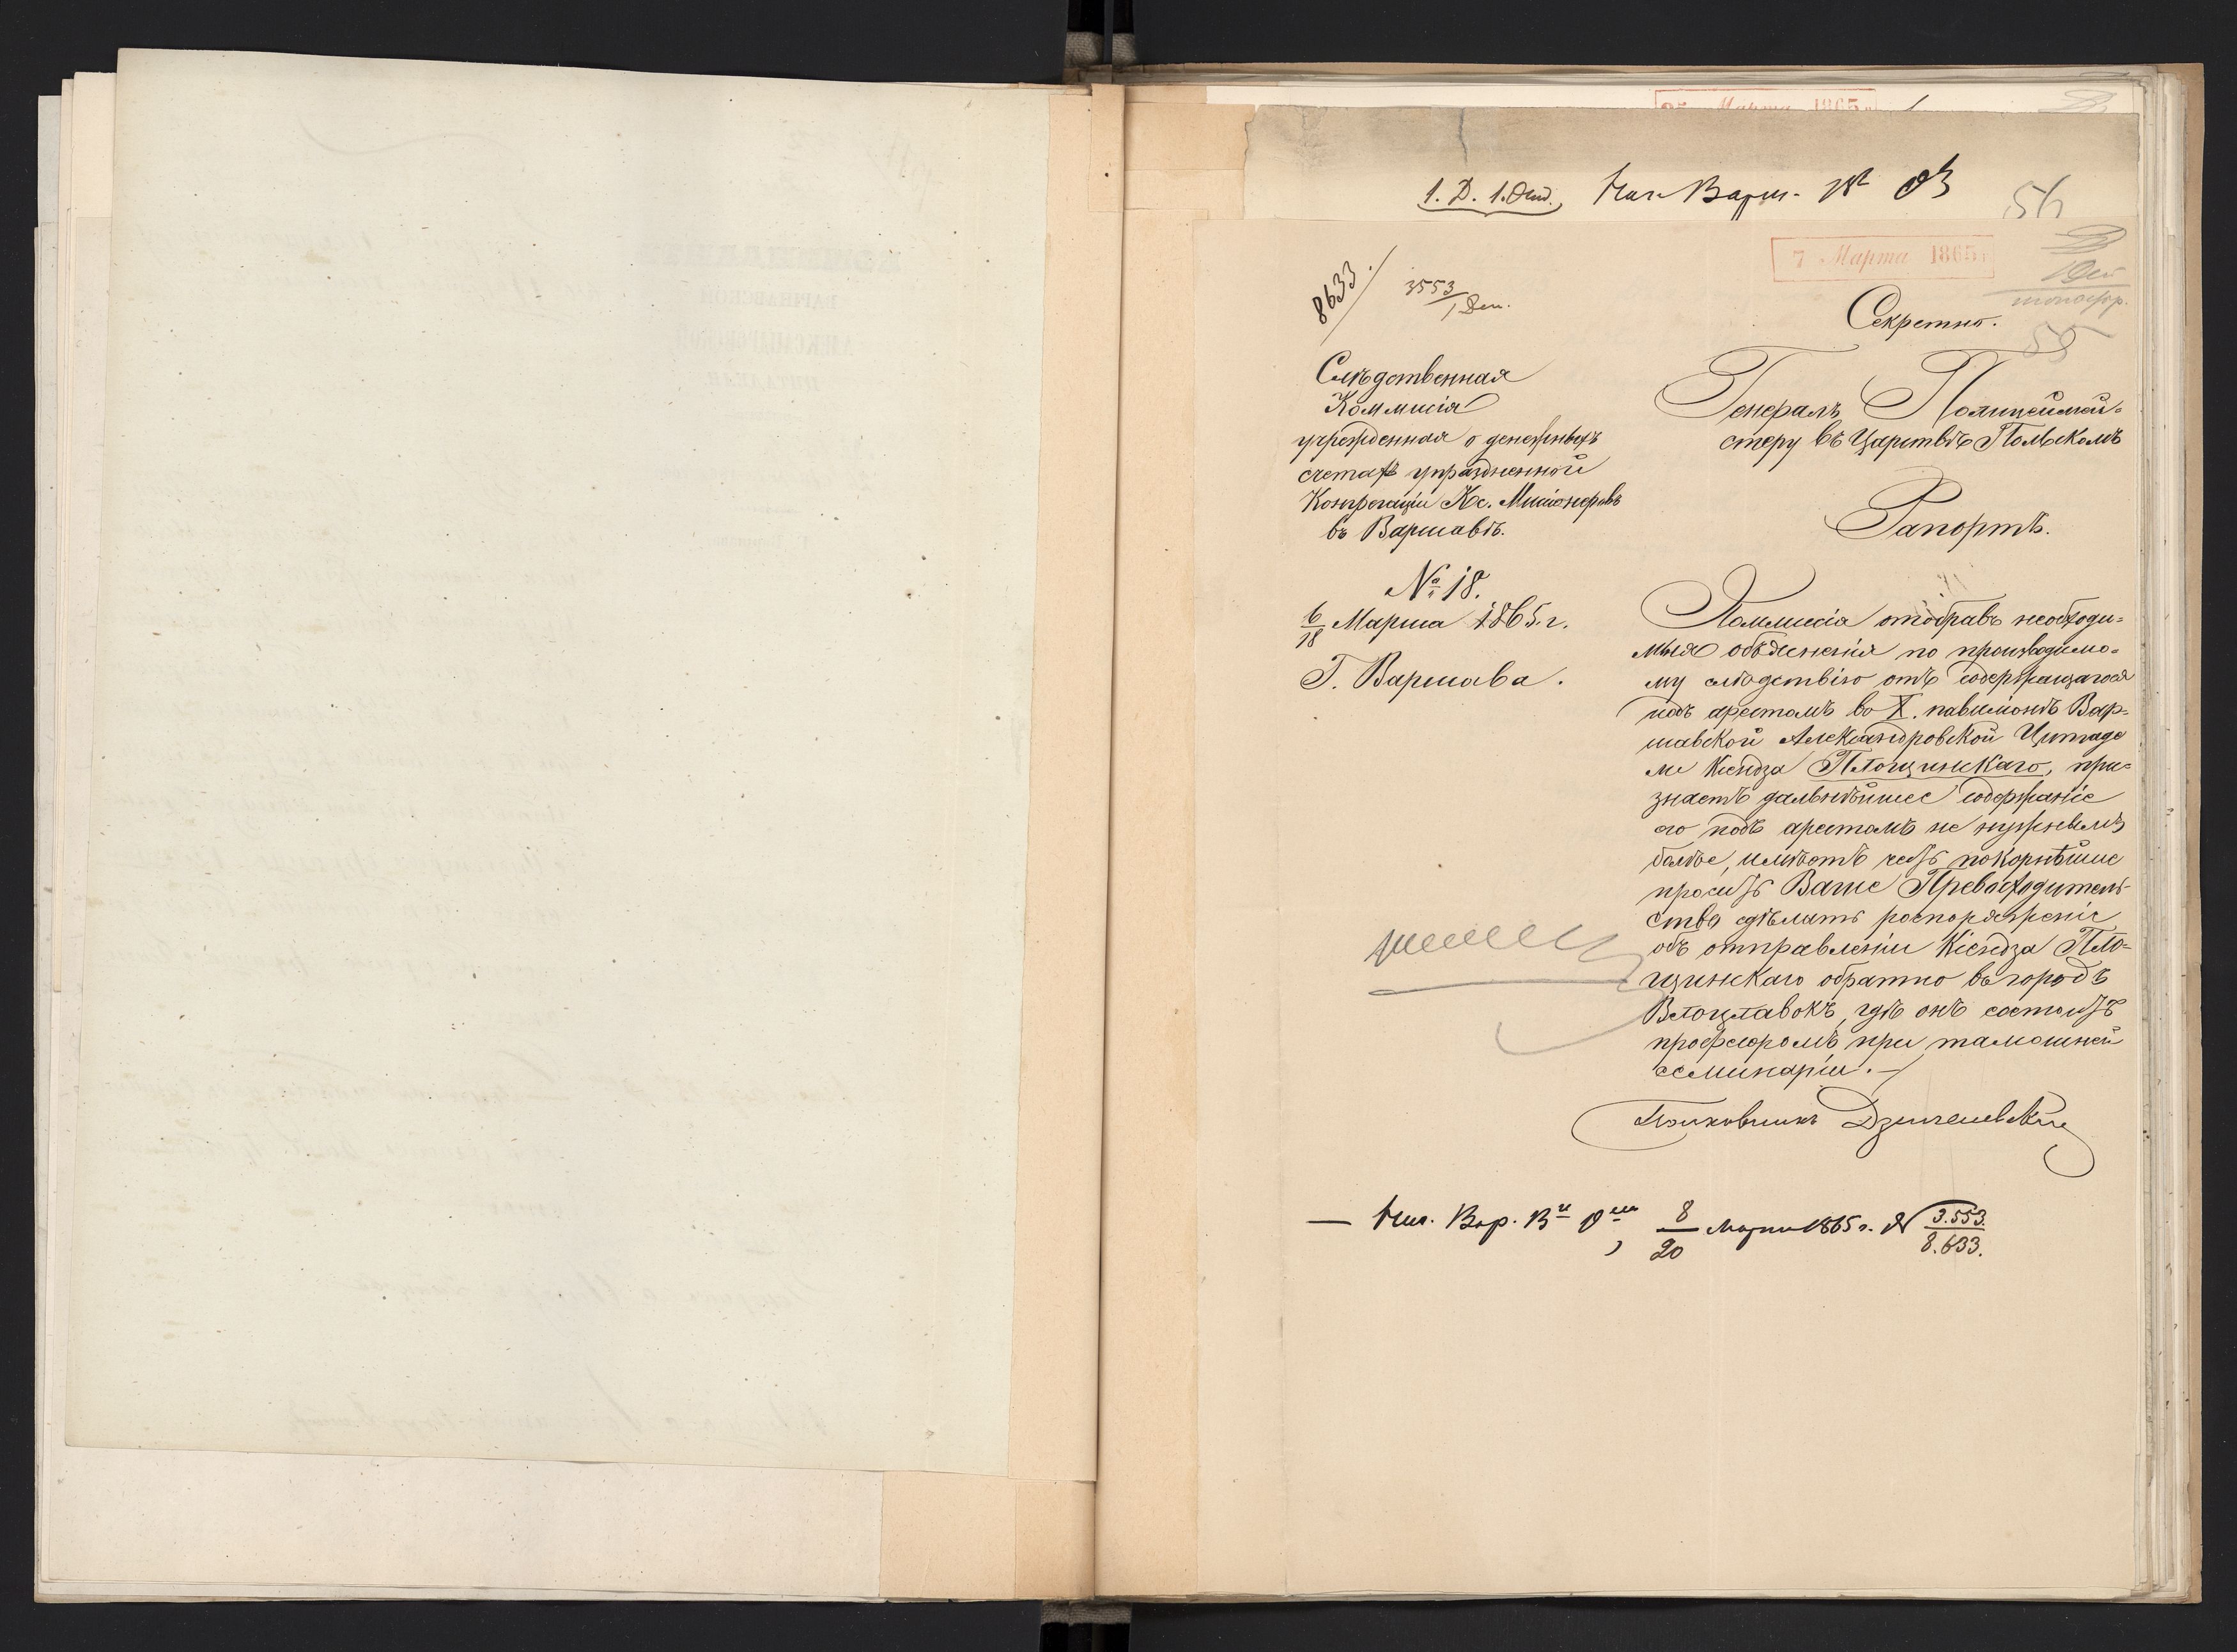 Марта 1865 г
1. Д. 1. Отд.
56
7 Марта 1865 г
8633
3553
Секретно.
55
Слѣдственная
Коммисія
учрежденная о денежныхъ
счетахъ упраздненной
Конгрегаціи Кс. Мисіонеровъ
въ Варшавѣ.
№ 18.
6/18 Марта 1865 г.
Г. Варшава.
Генералъ Полицеймей-
стеру въ Царствѣ Польскомъ
Рапортъ.
Коммисія отобравъ необходи-
мыя объясненія по производимо-
му слѣдствію отъ содержащагося
подъ арестомъ во X. павиліонѣ Вар-
шавской Александровской Цитаде
ли Ксендза Площинскаго, при-
знаетъ дальнѣйшее содержаніе
его подъ арестомъ не нужнымъ
болѣе, имѣетъ честь покорнѣйше
просить Ваше Превосходитель-
ство сдѣлать распоряженіе
объ отправленіи Ксендза Пло-
щинскаго обратно въ городъ
Влоцлавокъ, гдѣ онъ состоитъ
професоромъ при тамошней
семинаріи.
Полковникъ
8/20 Марта 1865 г. № 3.553./8.633.